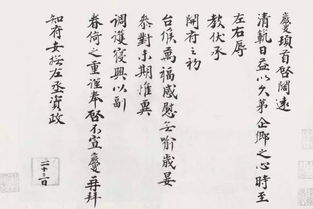 慶頓首啓闊遠
清範日益以久第企鄉之心時至
左右辱
教伏承
開府之初
台候萬福感慰無喻歲晏
叅對未期惟冀
調護寢興以副
眷倚之重謹奉啓不宣慶再拜
知府安撫左丞資政
二十三日